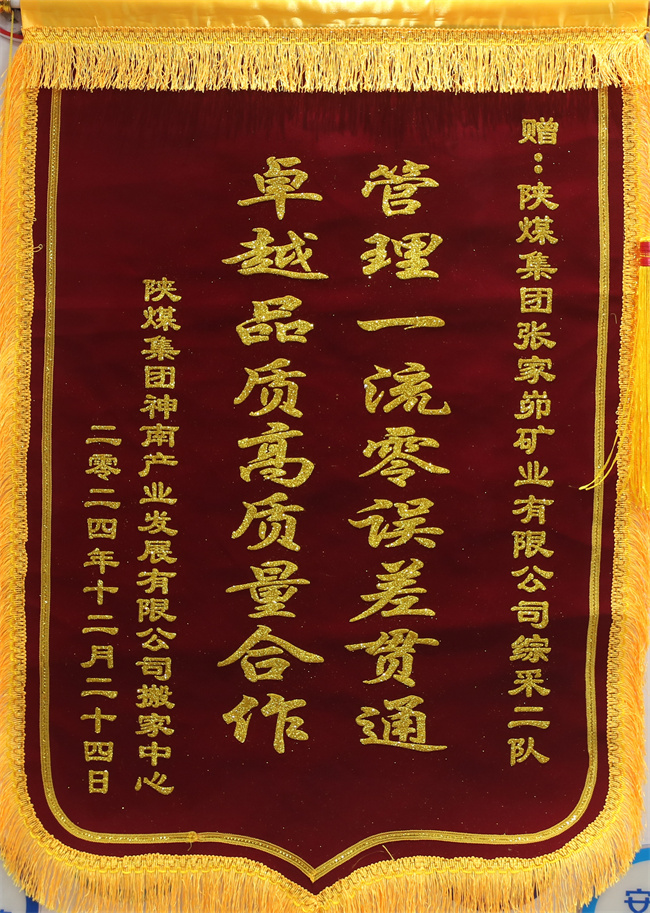 赠：陕煤集团张家峁矿业有限公司综采二队
管理一流零误差贯通
卓越品质高质量合作
陕煤集团神南产业发展有限公司搬家中心
二零二四年十二月二十四日
安